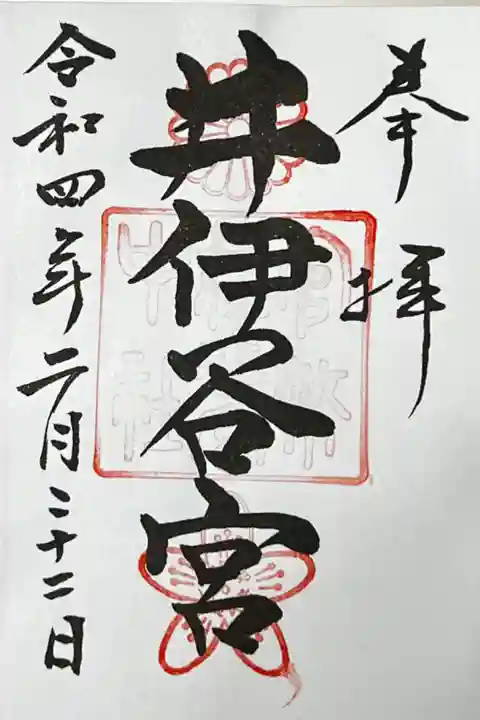 奉拝
井伊谷宮
令和四年二月二十二日